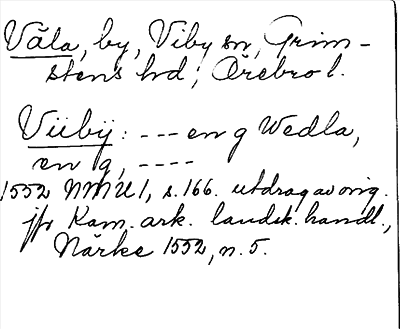 Våla, by, Viby sn, Grim-
stens hd, Örebro l.
Viibÿ: --- en g Wedla,
en g, ----
1552 NMU 1, s. 166. utdrag av orig.
jfr Kam. ark. landsk. handl.,
Närke 1552, n. 5.